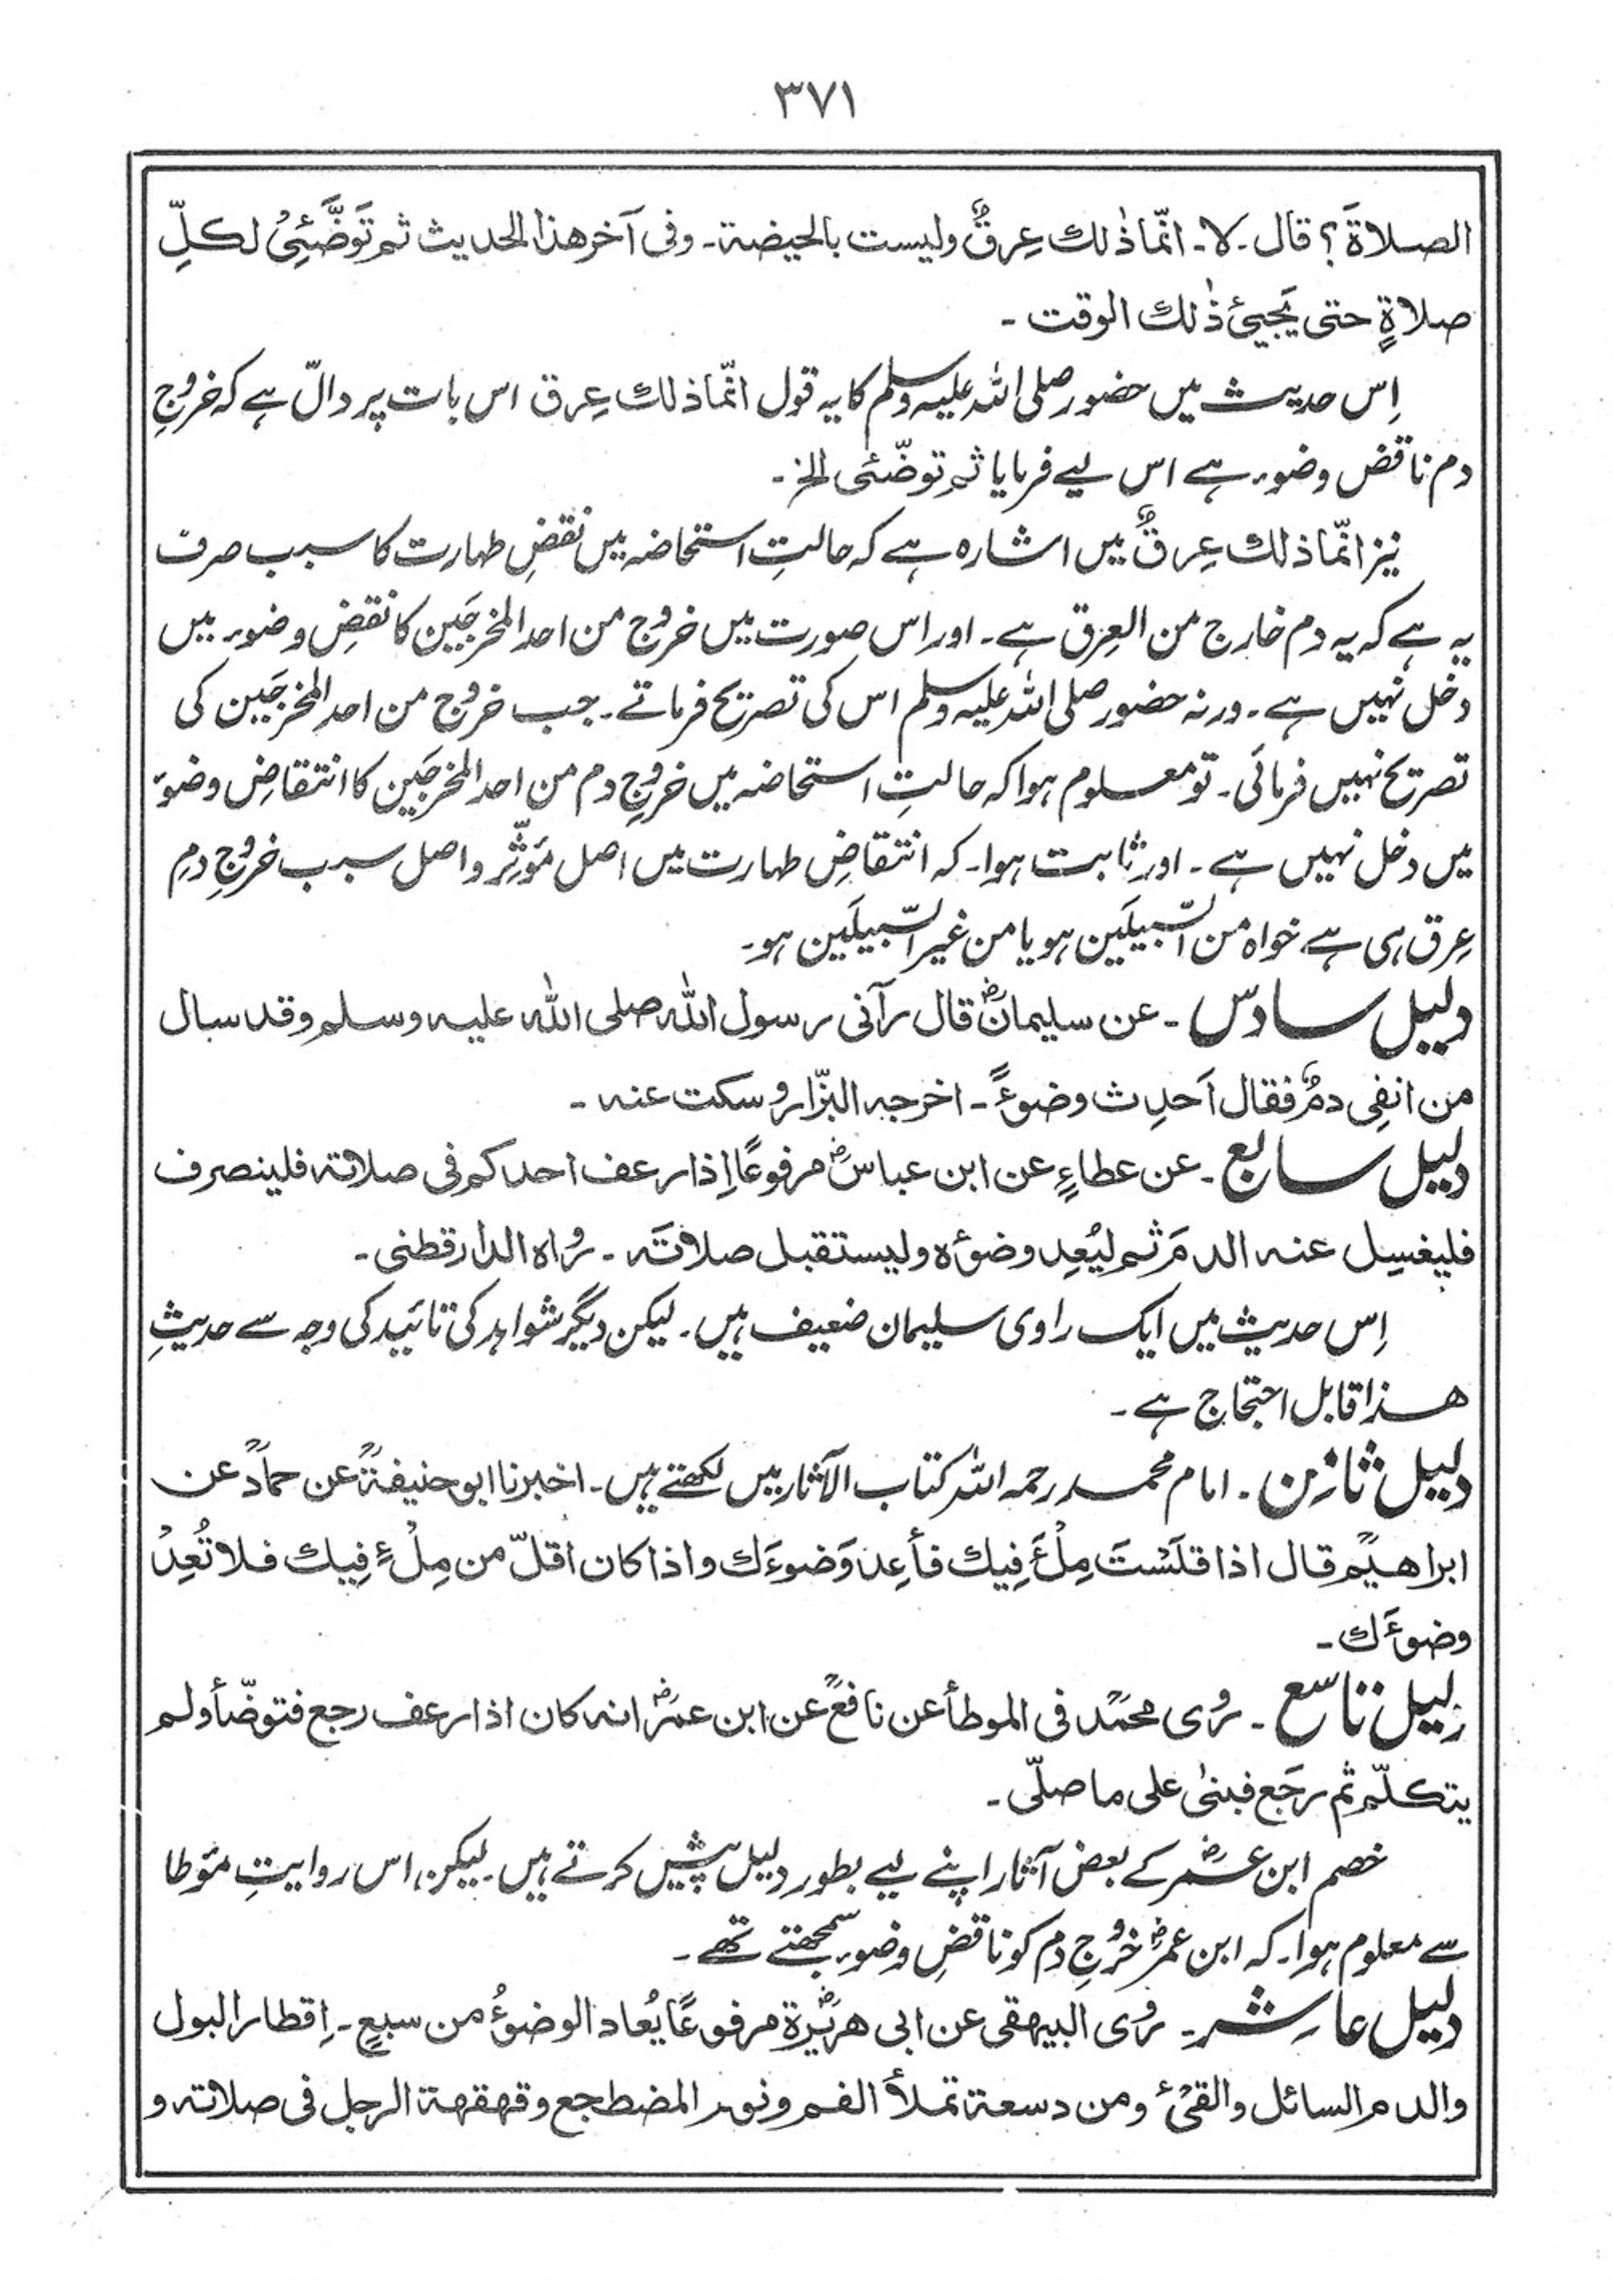 ٣٧١
الصلاةَ؟ قال۔ لا۔ انّما ذٰلك عِرقٌ وليست بالحيضة۔ وفى آخر هذا الحديث ثم تَوَضَّئِىْ لكلِّ
صلاةٍ حتى يَجيئَ ذٰلك الوقت ۔
اِس حدیث میں حضور صلی اللہ علیہ وسلم کا یہ قول انّما ذلك عِرق اس بات پر دالّ ہے کہ خروجِ
دم ناقض وضوء ہے اس لیے فرمایا ثم توضّئى الخ ۔
نیز انّما ذلك عِرقٌ میں اشارہ ہے کہ حالتِ استحاضہ میں نقضِ طہارت کا سبب صرف
یہ ہے کہ یہ دم خارج من العِرق ہے۔ اور اس صورت میں خروج من احد المخرجَین کا نقضِ وضوء میں
دخل نہیں ہے۔ ورنہ حضور صلی اللہ علیہ وسلم اس کی تصریح فرماتے۔ جب خروج من احد المخرجَین کی
تصریح نہیں فرمائی۔ تو معلوم ہوا کہ حالتِ استحاضہ میں خروجِ دم من احد المخرجَین کا انتقاضِ وضوء
میں دخل نہیں ہے۔ اور ثابت ہوا۔ کہ انتقاضِ طہارت میں اصل مَؤثِّر و اصل سبب خروجِ دمِ
عِرق ہی ہے خواہ من السّبیلَین ہو یا من غیر السّبیلَین ہو۔
دلیل سادس ۔ عن سليمانؓ قال رآنى رسول الله صلى الله عليه وسلم وقد سال
من انفِى دمٌ فقال اَحدِث وضوءً ۔ اخرجه البزّار وسكت عنه ۔
دلیل سابع ۔ عن عطاءٍ عن ابن عباسؓ مرفوعًا اِذا رعف احدكم فى صلاته فلينصرف
فليغسِل عنه الدمَ ثم ليُعِد وضوءَه وليستقبل صلاتَه ۔ رواه الدارقطنى ۔
اِس حدیث میں ایک راوی سلیمان ضعیف ہیں۔ لیکن دیگر شواہد کی تائید کی وجہ سے حدیثِ
ھذا قابل احتجاج ہے ۔
دلیل ثامِن ۔ امام محمد رحمہ اللہ کتاب الآثار میں لکھتے ہیں۔ اخبرنا ابو حنيفةؒ عن حمادؒ عن
ابراهيمؒ قال اذا قلَسْتَ مِلْءَ فِيك فأعِد وَضوءَك واذا كان اقلّ من مِلْءٍ فِيك فلا تُعِدْ
وضوءَك ۔
دلیل تاسع ۔ روى محمدؒ فى الموطأ عن نافعؒ عن ابن عمرؓ انه كان اذا رعف رجع فتوضّأ ولم
يتكلّم ثم رجَع فبنىٰ على ما صلّى ۔
خصم ابن عمرؓ کے بعض آثار اپنے لیے بطور دلیل پیش کرتے ہیں۔ لیکن اس روایتِ مؤطا
سے معلوم ہوا۔ کہ ابن عمرؓ خروجِ دم کو ناقضِ وضوء سمجھتے تھے ۔
دلیل عاشر ۔ روى البيهقى عن ابى هريرةؓ مرفوعًا يُعاد الوضوءُ من سبعٍ ۔ اِقطار البول
والدم السائل والقئ ومن دسعة تملأ الفم ونوم المضطجع وقهقهة الرجل فى صلاته و